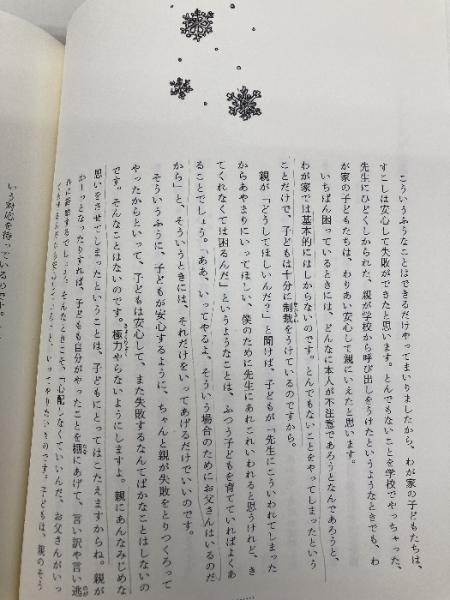 こういうふうなことはできるだけやってまいりましたから、わが家の子どもたちは、
すこしは安心して失敗ができたと思います。とんでもないことを学校でやっちゃった、
先生にひどくしかられた、親が学校から呼び出しをうけたというようなときでも、わ
が家の子どもたちは、わりあい安心して親にいえたと思います。
いちばん困っているときには、どんなに本人が不注意であろうとなんであろうと、
わが家では基本的にはしからないのです。とんでもないことをやってしまったという
ことだけで、子どもは十分に制裁をうけているのですから。
親が「どうしてほしいんだ？」と聞けば、子どもが「先生にこういわれてしまった
からあやまりにいってほしい、僕のために先生にあれこれいわれると思うけれど、き
てくれなくては困るんだ」というようなことは、ふつう子どもを育てていればよくあ
ることでしょう。「ああ、いってやるよ、そういう場合のためにお父さんはいるのだ
から」と、そういうときには、それだけをいってあげるだけでいいんです。
そういうふうに、子どもが安心するように、ちゃんと親が失敗をとりつくろって
やったからといって、子どもは安心して、また失敗するなんてばかなことはしないの
です。そんなことはないのです。極力やらないようにしますよ。親にあんなみじめな
思いをさせてしまったということは、子どもにとってはこたえますからね。親が
かーっとなったりすれば、子どもも自分がやったことを棚にあげて、言い訳や言い逃
そんなときこそ、「心配しなくていいんだ、お父さんがいっ
いってやりたいものです。子どもは、親のそう
いう対応を待っているのです。